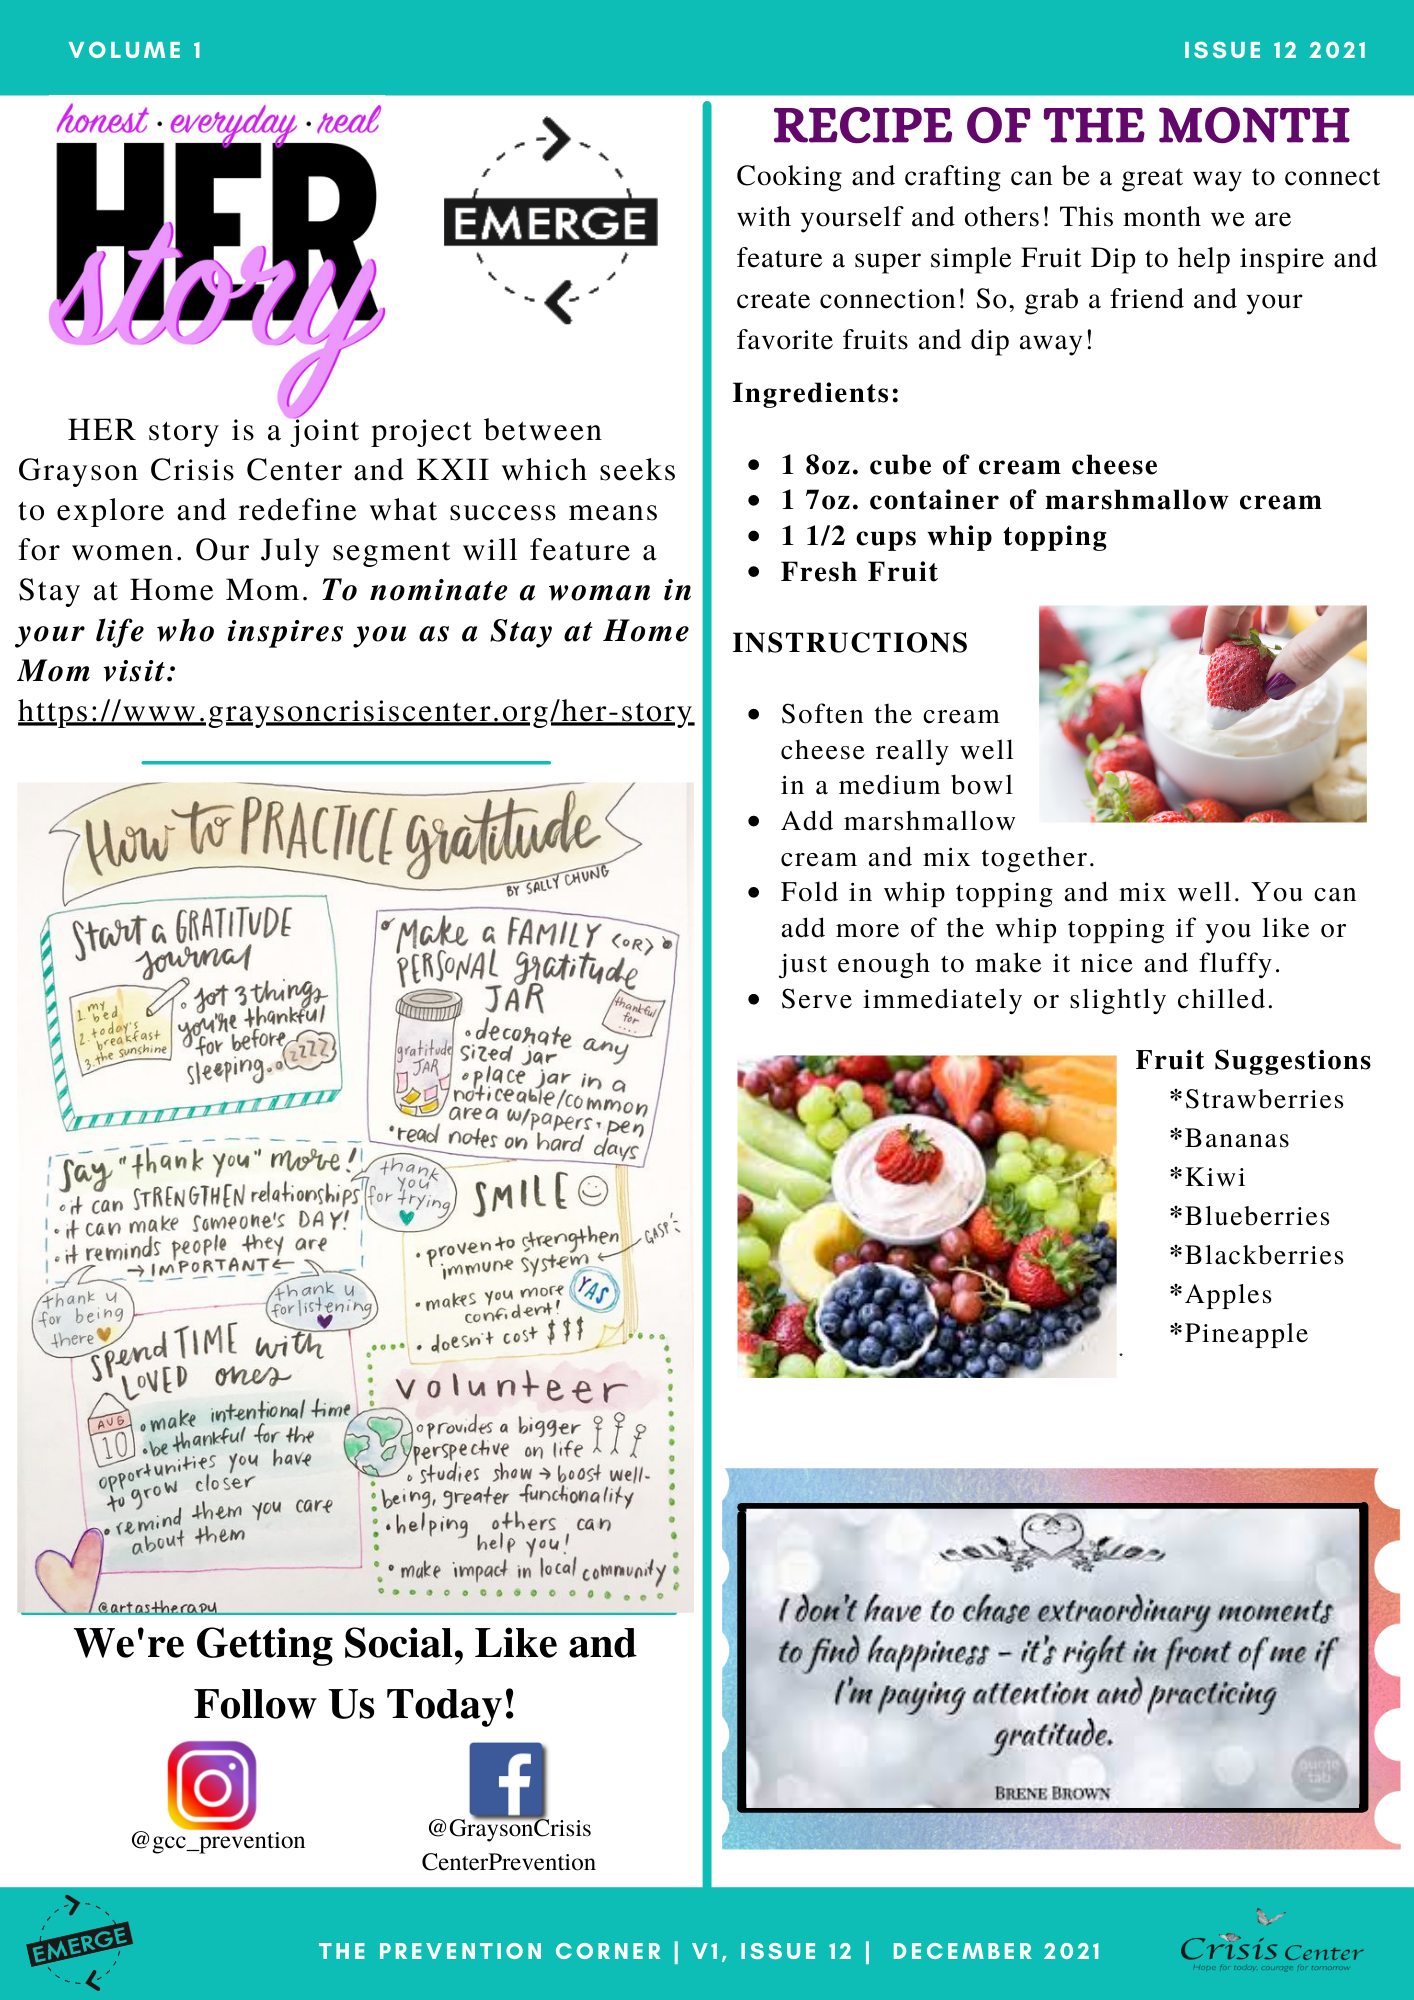 VOLUME 1
ISSUE 12 2021
honest · everyday · real
HER
story
EMERGE
HER story is a joint project between
Grayson Crisis Center and KXII which seeks
to explore and redefine what success means
for women. Our July segment will feature a
Stay at Home Mom. To nominate a woman in
your life who inspires you as a Stay at Home
Mom visit:
https://www.graysoncrisiscenter.org/her-story
How to PRACTICE gratitude
BY SALLY CHUNG
Start a GRATITUDE
journal
1. my
bed
2. today's
breakfast
3. the sunshine
• jot 3 things
you're thankful
for before
sleeping.
zzzz
Make a FAMILY <OR>
PERSONAL gratitude
JAR
thankful
for
....
gratitude
JAR
• decorate any
sized jar
• place jar in a
noticeable/common
area w/papers + pen
• read notes on hard days
Say "thank you" more!
• it can STRENGTHEN relationships
• it can make someone's DAY!
• it reminds people they are
→IMPORTANT←
thank
you
for trying
thank u
for being
there
thank u
for listening
SMILE
• proven to strengthen
immune system
GASP!
• makes you more
confident!
YAS
• doesn't cost $$$
Spend TIME with
LOVED ones
AUG
10
• make intentional time
• be thankful for the
opportunities you have
to grow closer
• remind them you care
about them
volunteer
• provides a bigger
perspective on life
• studies show → boost well-
being, greater functionality
• helping others can
help you!
• make impact in local community
@artastherapy
We're Getting Social, Like and
Follow Us Today!
@gcc_prevention
@GraysonCrisis
CenterPrevention
RECIPE OF THE MONTH
Cooking and crafting can be a great way to connect
with yourself and others! This month we are
feature a super simple Fruit Dip to help inspire and
create connection! So, grab a friend and your
favorite fruits and dip away!
Ingredients:
• 1 8oz. cube of cream cheese
• 1 7oz. container of marshmallow cream
• 1 1/2 cups whip topping
• Fresh Fruit
INSTRUCTIONS
• Soften the cream
cheese really well
in a medium bowl
• Add marshmallow
cream and mix together.
• Fold in whip topping and mix well. You can
add more of the whip topping if you like or
just enough to make it nice and fluffy.
• Serve immediately or slightly chilled.
Fruit Suggestions
*Strawberries
*Bananas
*Kiwi
*Blueberries
*Blackberries
*Apples
*Pineapple
.
I don't have to chase extraordinary moments
to find happiness – it's right in front of me if
I'm paying attention and practicing
gratitude.
BRENE BROWN
quote
tab
EMERGE
THE PREVENTION CORNER | V1, ISSUE 12 | DECEMBER 2021
Crisis Center
Hope for today, courage for tomorrow